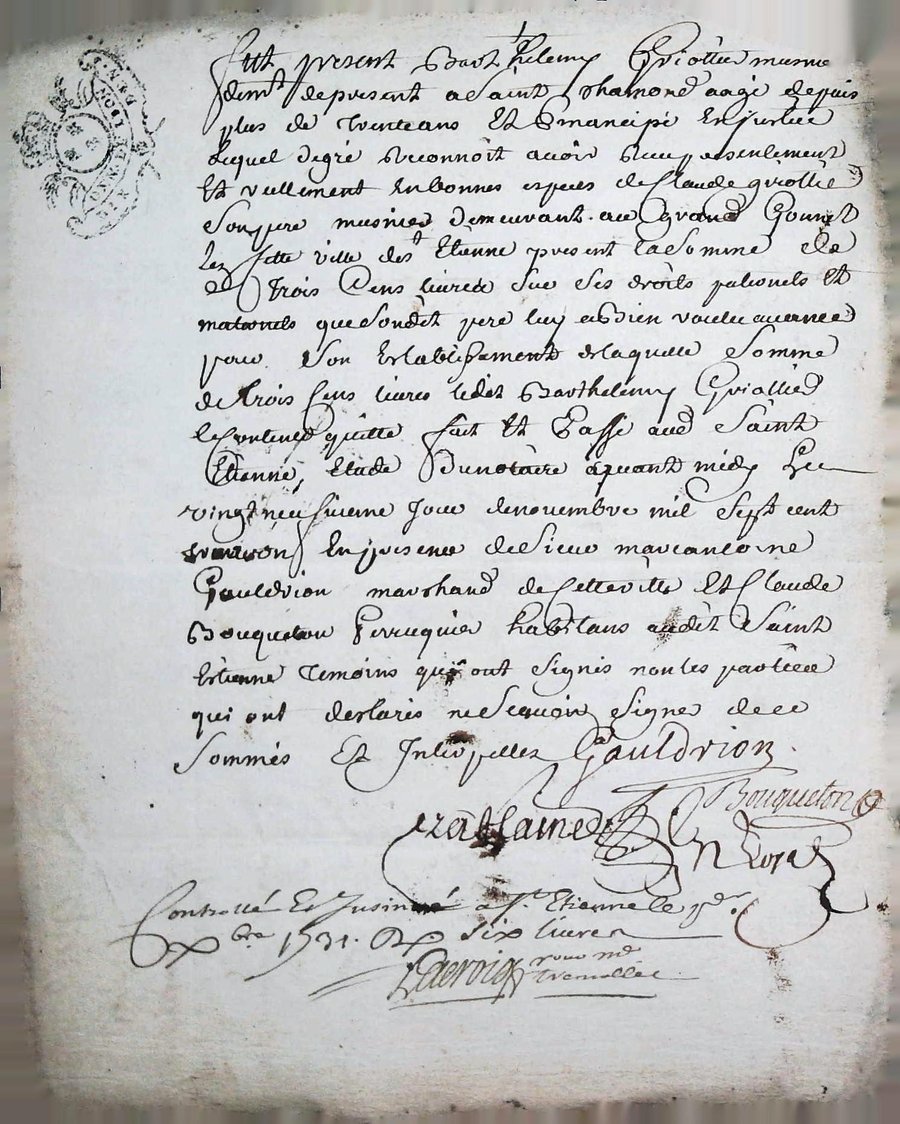 fut present Barthelemy Griottier musnie
dem.t depresent a Saint Chamond aagé depuis
plus de trenteans Et Emancipé Enjustice
Lequel degré Reconnoit avoir Receu presentement
Et réellement Enbonnes especes de Claude griottie
Sonpere musnier demeurant au grand Gounet
Lez Cette ville de s.t Etienne present La Somme de
Trois Cens livres sur Ses droits paternels Et
maternels queSondit pere luy abien voulu avancer
pour Son Establissement delaquelle Somme
de trois Cens livres ledit Barthelemy Griottier
Le quitte fait Et Passé aud Saint
Etienne, Etude Dunotaire avant midy Le
vingtneufvieme Jour denovembre mil Sept cent
En presence de Sieur marcantoine
Gauldrion marchand de Cetteville Et Claude
Bouqueton Perruquier habitans audit Saint
Etienne Temoins qui ont Signés non les parties
qui ont declarés neScavoir Signer de ce
Sommés Et Interpellez Gauldrion
Bouqueton
N Royal
Controllé Et Insinué a S.t Etienne le
X bre 1731. R six livres
Lacroix pour m.r